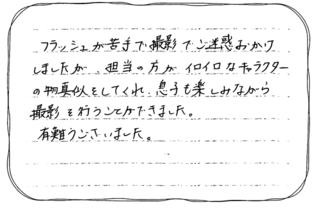 フラッシュが苦手で撮影でご迷惑おかけ
しましたが、担当の方がイロイロなキャラクター
の物真似をしてくれ、息子も楽しみながら
撮影を行うことができました。
有難うございました。